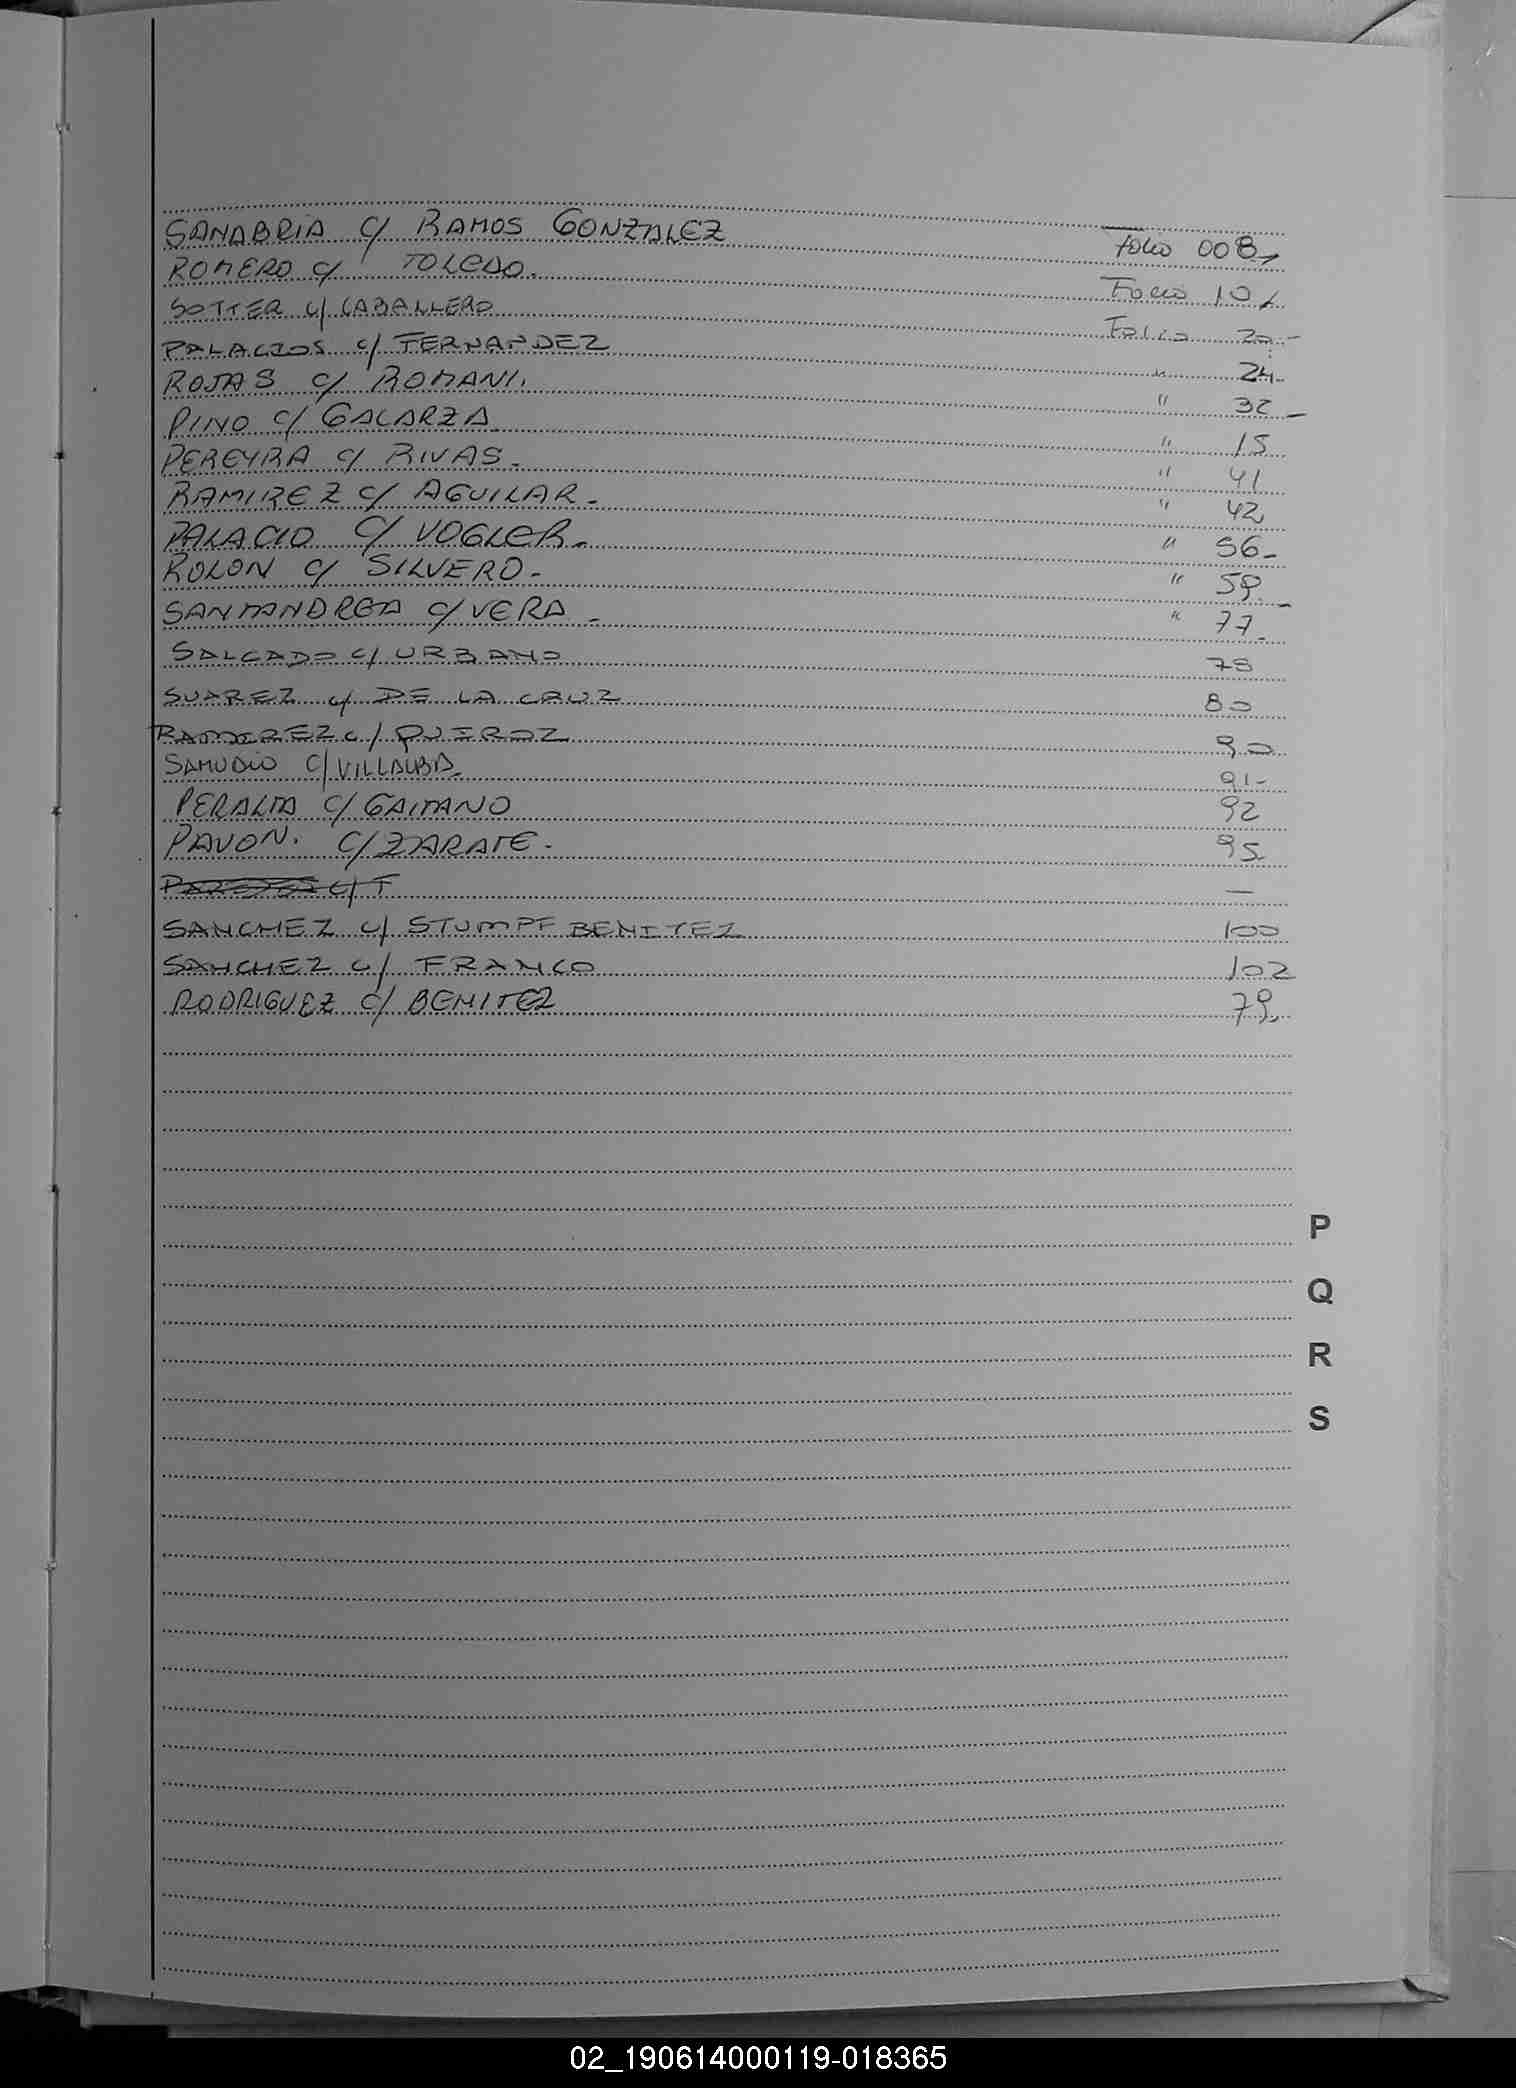 SANABRIA c/ RAMOS GONZALEZ Folio 008
ROMERO c/ TOLEDO. Folio 10
SOTTER c/ CABALLERO Folio 20.-
PALACIOS c/ FERNANDEZ " 24-
ROJAS c/ ROMANI. " 32-
PINO c/ GALARZA " 15
PEREYRA c/ RIVAS. " 41
RAMIREZ c/ AGUILAR- " 42
PALACIO c/ VOGLER- " 56-
ROLON c/ SILVERO- " 59-
SANTANDREA c/ VERA- " 77-
SALGADO c/ URBANO 78
SUAREZ c/ DE LA CRUZ 80
RAMIREZ c/ QUIROZ 90
SAMUDIO c/ VILLALBA 91-
PERALTA c/ GAITANO 92
PAVON. c/ ZARATE- 95
c/ F —
SANCHEZ c/ STUMPF BENITEZ 100
SANCHEZ c/ FRANCO 102
RODRIGUEZ c/ BENITEZ 79
P
Q
R
S
02_190614000119-018365